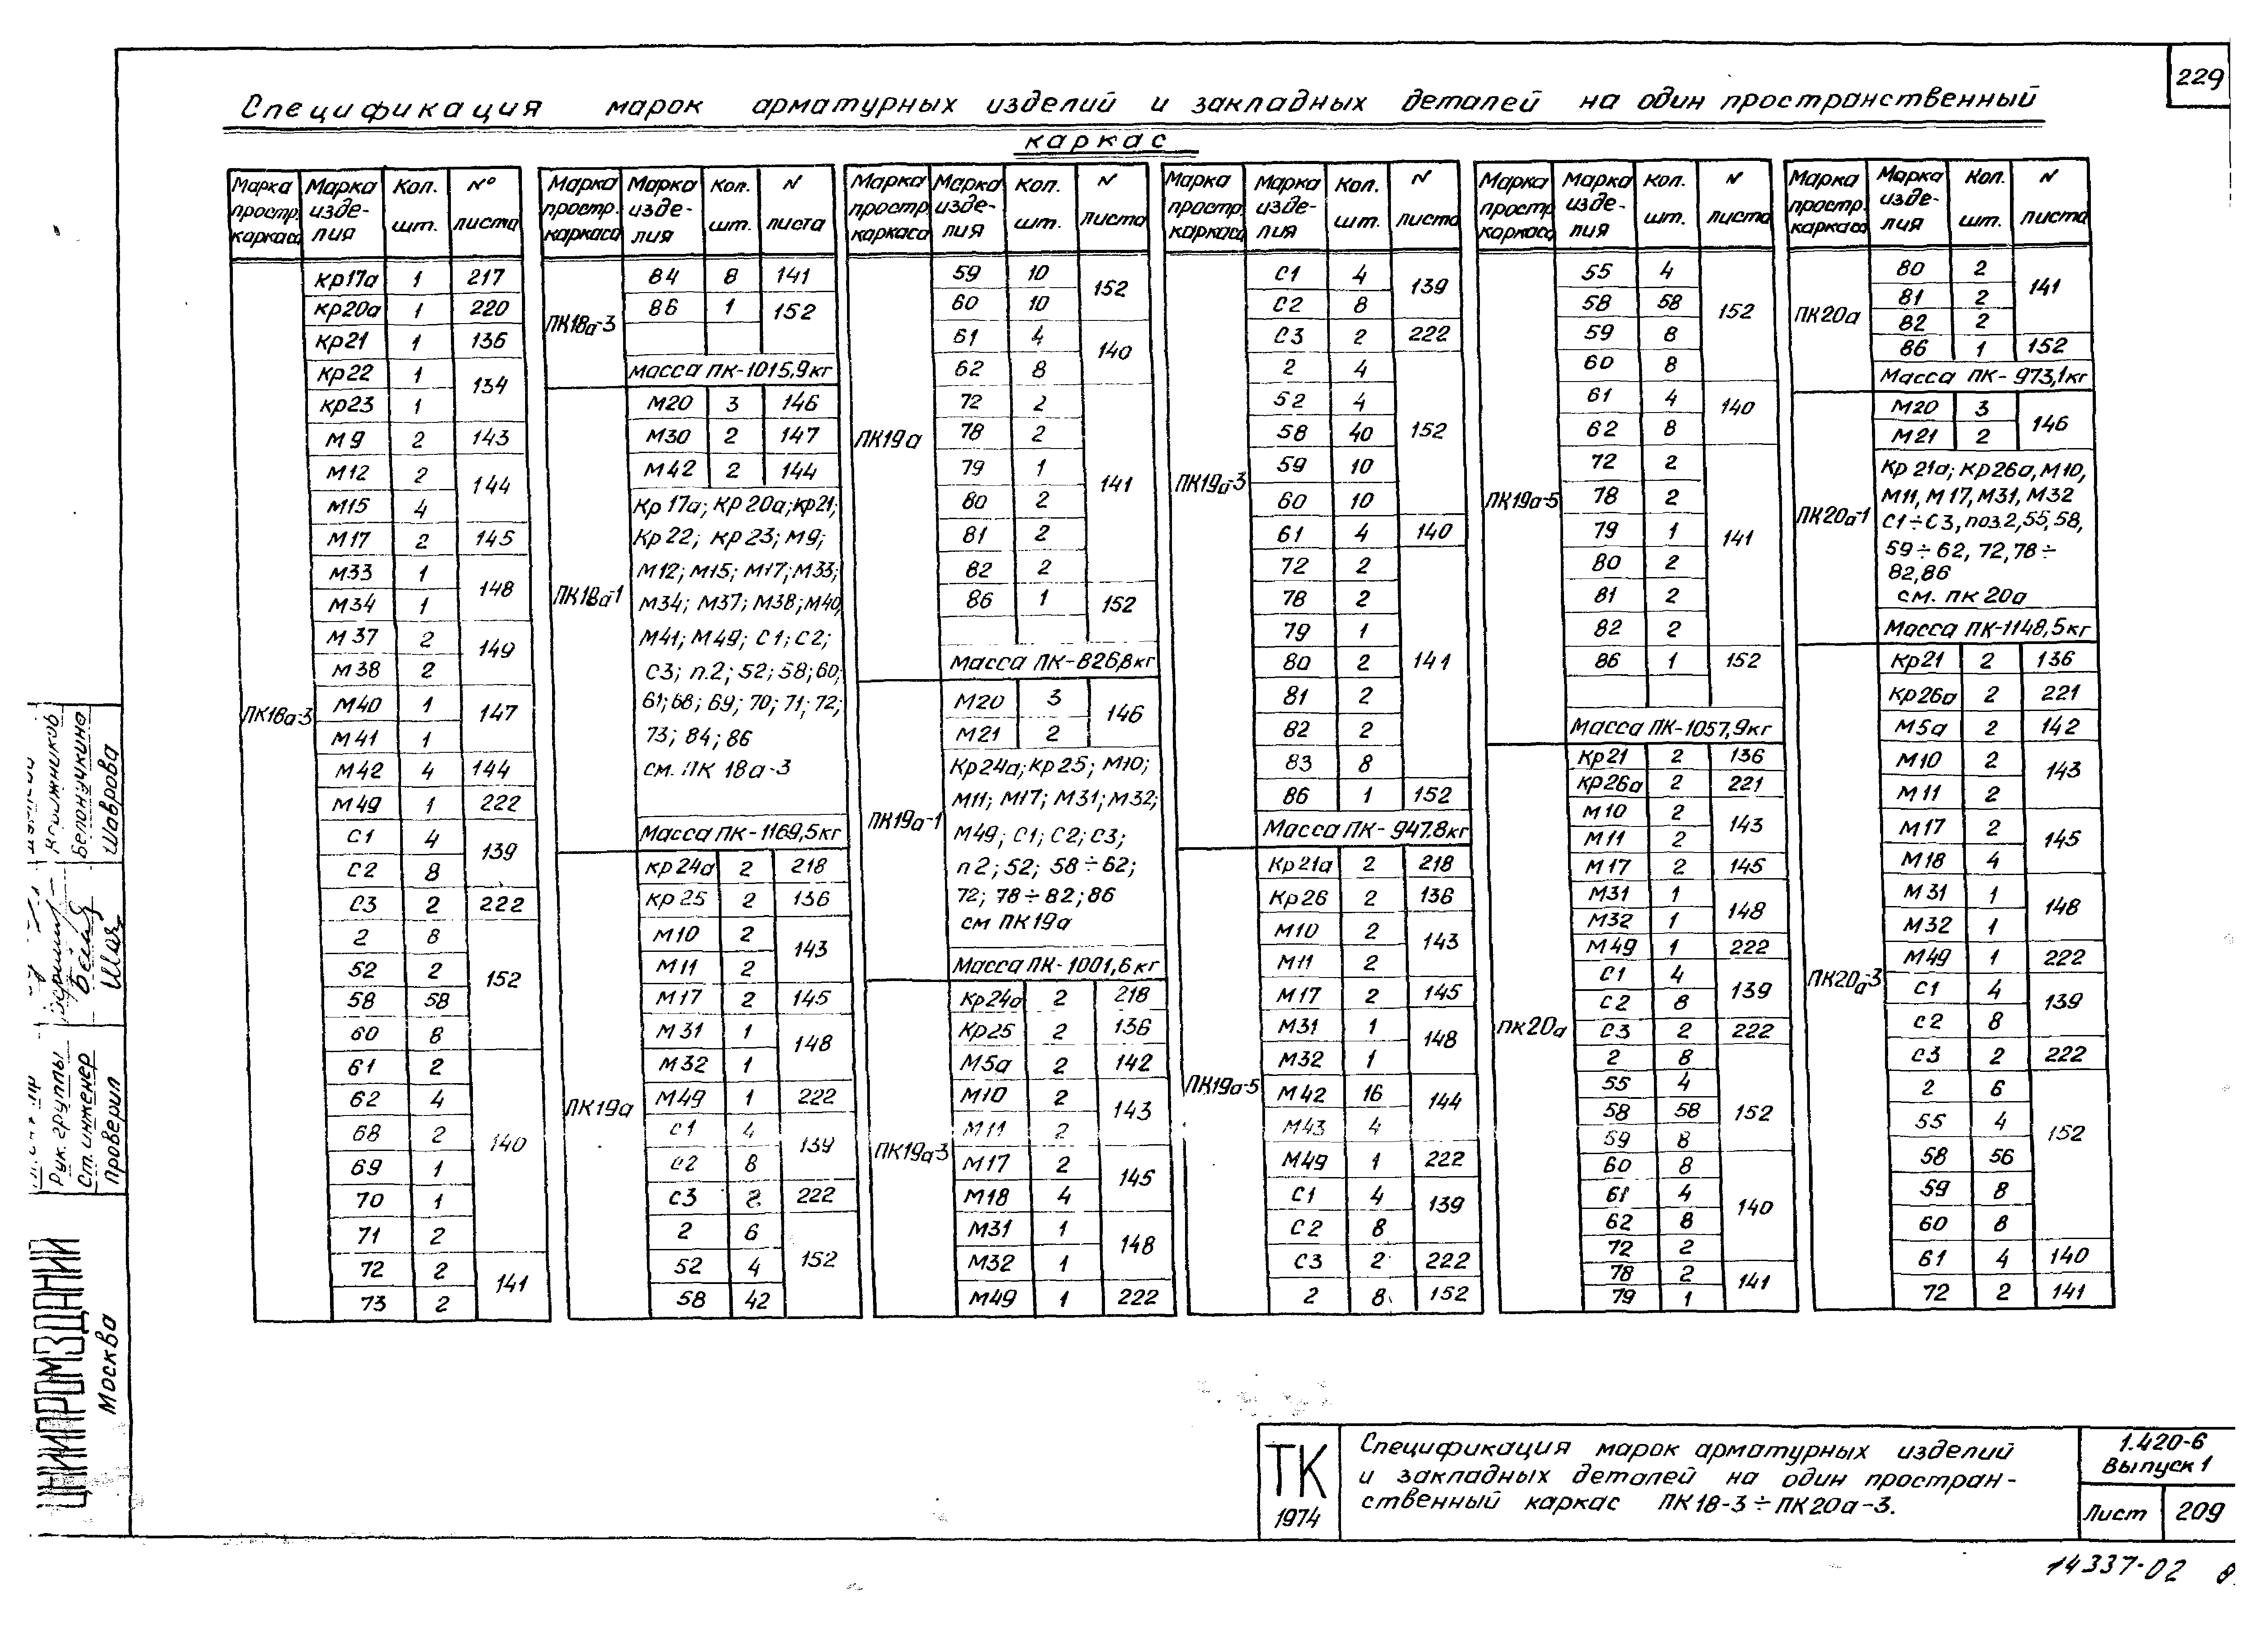 229
Спецификация марок арматурных изделий и закладных деталей на один пространственный
каркас
Марка простр. каркаса | Марка изделия | Кол. шт. | № листа
ПК18а-3
Кр17а 1 217
Кр20а 1 220
Кр21 1 136
Кр22 1 134
Кр23 1
М9 2 143
М12 2 144
М15 4
М17 2 145
М33 1 148
М34 1
М37 2 149
М38 2
М40 1 147
М41 1
М42 4 144
М49 1 222
С1 4 139
С2 8
С3 2 222
2 8 152
52 2
58 58
60 8
61 2 140
62 4
68 2
69 1
70 1
71 2
72 2 141
73 2
Марка простр. каркаса | Марка изде-лия | Кол. шт. | N листа
ПК18а-3
84 8 141
86 1 152
Масса ПК-1015,9кг
ПК18а-1
М20 3 146
М30 2 147
М42 2 144
Кр17а; Кр20а; Кр21;
Кр22; Кр23; М9;
М12; М15; М17; М33;
М34; М37; М38; М40;
М41; М49; С1; С2;
С3; п.2; 52; 58; 60;
61; 68; 69; 70; 71; 72;
73; 84; 86
см. ПК 18а-3
Масса ПК-1169,5кг
ПК19а
Кр24а 2 218
Кр25 2 136
М10 2 143
М11 2
М17 2 145
М31 1 148
М32 1
М49 1 222
С1 4 139
С2 8
С3 2 222
2 6 152
52 4
58 42
Марка простр. каркаса | Марка изде-лия | Кол. шт. | N листа
ПК19а
59 10 152
60 10
61 4 140
62 8
72 2 141
78 2
79 1
80 2
81 2
82 2
86 1 152
Масса ПК-826,8кг
ПК19а-1
М20 3 146
М21 2
Кр24а; Кр25; М10;
М11; М17; М31; М32;
М49; С1; С2; С3;
п2; 52; 58÷62;
72; 78÷82; 86
см ПК19а
Масса ПК-1001,6кг
ПК19а-3
Кр24а 2 218
Кр25 2 136
М5а 2 142
М10 2 143
М11 2
М17 2 145
М18 4
М31 1 148
М32 1
М49 1 222
Марка простр. каркаса | Марка изде-лия | Кол. шт. | N листа
ПК19а-3
С1 4 139
С2 8
С3 2 222
2 4 152
52 4
58 40
59 10
60 10
61 4 140
72 2 141
78 2
79 1
80 2
81 2
82 2
83 8
86 1 152
Масса ПК-947.8кг
ПК19а-5
Кр21а 2 218
Кр26 2 136
М10 2 143
М11 2
М17 2 145
М31 1 148
М32 1
М42 16 144
М43 4
М49 1 222
С1 4 139
С2 8
С3 2 222
2 8 152
Марка простр. каркаса | Марка изде-лия | Кол. шт. | N листа
ПК19а-5
55 4 152
58 58
59 8
60 8
61 4 140
62 8
72 2 141
78 2
79 1
80 2
81 2
82 2
86 1 152
Масса ПК-1057,9кг
ПК20а
Кр21 2 136
Кр26а 2 221
М10 2 143
М11 2
М17 2 145
М31 1 148
М32 1
М49 1 222
С1 4 139
С2 8
С3 2 222
2 8 152
55 4
58 58
59 8
60 8 140
61 4
62 8
72 2
78 2 141
79 1
Марка простр. каркаса | Марка изде-лия | Кол. шт. | N листа
ПК20а
80 2 141
81 2
82 2
86 1 152
Масса ПК-973,1кг
ПК20а-1
М20 3 146
М21 2
Кр21а; Кр26а, М10,
М11, М17, М31, М32
С1÷С3, поз.2, 55, 58,
59÷62, 72, 78÷
82, 86
см. ПК20а
Масса ПК-1148,5кг
ПК20а-3
Кр21 2 136
Кр26а 2 221
М5а 2 142
М10 2 143
М11 2
М17 2 145
М18 4
М31 1 148
М32 1
М49 1 222
С1 4 139
С2 8
С3 2 222
2 6 152
55 4
58 56
59 8
60 8
61 4 140
72 2 141
Рук. группы
Ст. инженер Белоручкина
Проверил Шаврова
ЦНИИПРОМЗДАНИЙ
Москва
ТК
1974
Спецификация марок арматурных изделий
и закладных деталей на один простран-
ственный каркас ПК18-3÷ПК20а-3.
1.420-6
Выпуск 1
Лист 209
14337-02